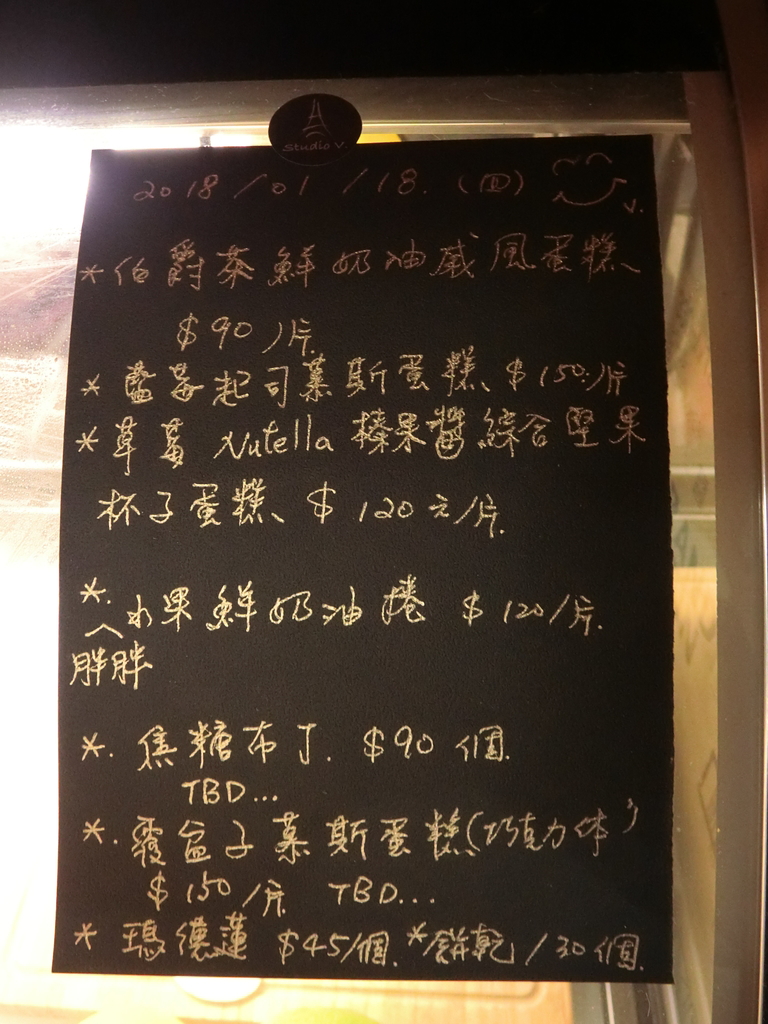 Studio V.
2018/01/18.(四)
V.
*伯爵茶鮮奶油戚風蛋糕、
$90/片
*藍莓起司慕斯蛋糕、$150/片
*草莓Nutella榛果醬綜合堅果
杯子蛋糕、$120元/片.
*.水果鮮奶油捲 $120/片.
^
胖胖
*.焦糖布丁. $90 個.
TBD...
*.覆盆子慕斯蛋糕(巧克力体)
$150/片 TBD...
*瑪德蓮 $45/個. *餅乾/30個.